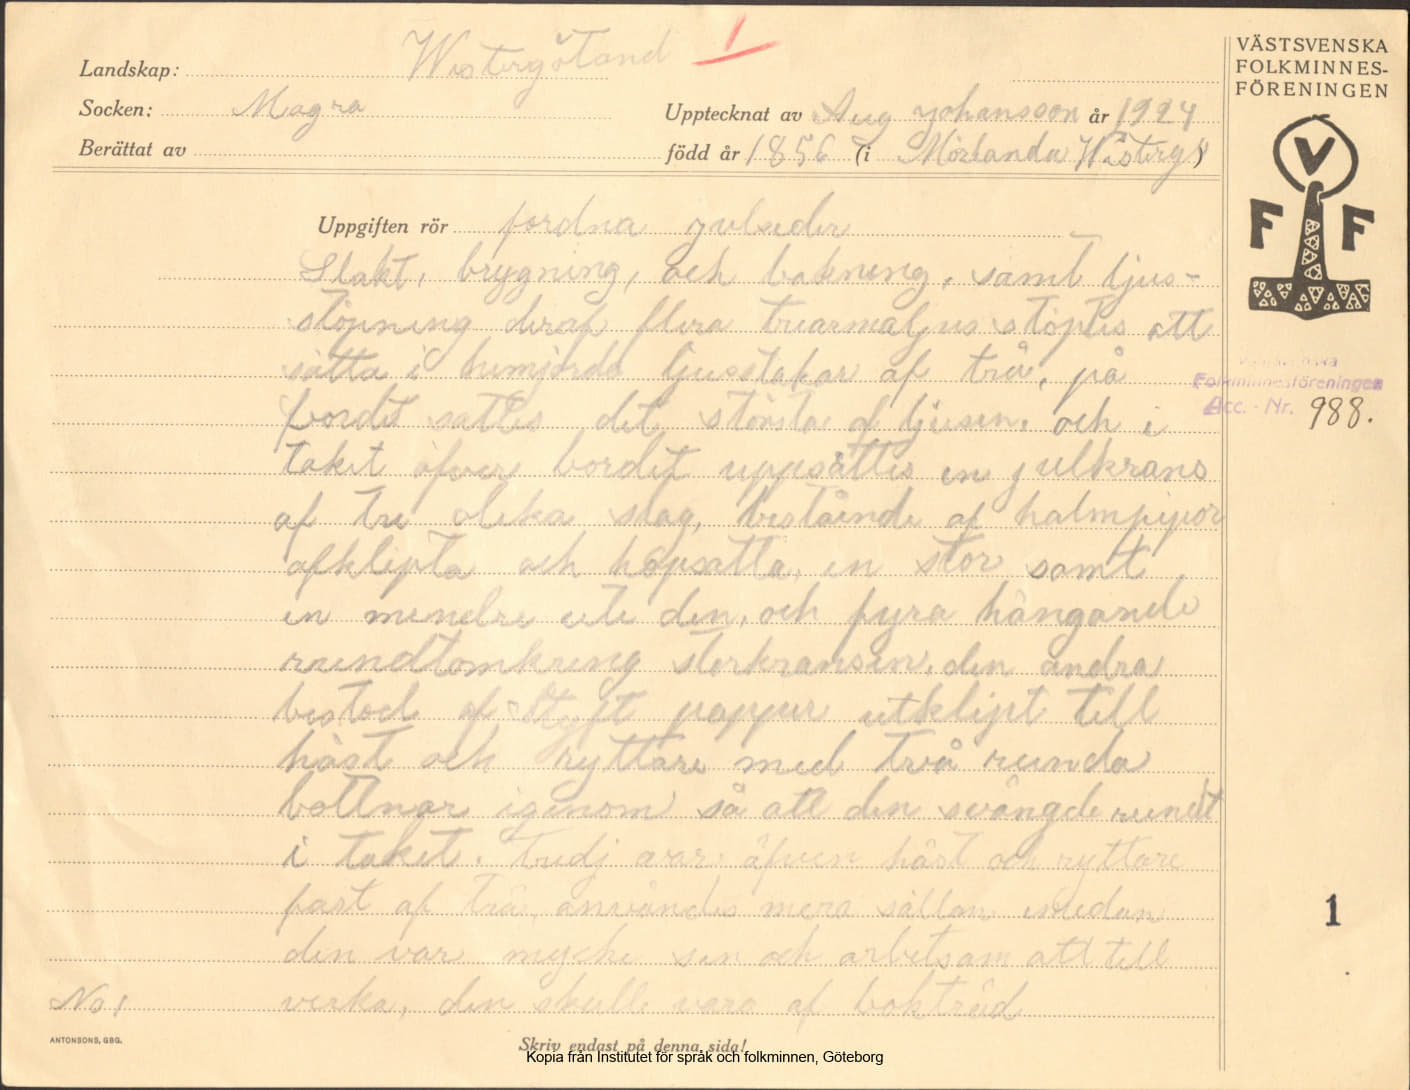 Landskap: Westergötland 1
VÄSTSVENSKA
FOLKMINNES-
FÖRENINGEN
Socken: Magra
Upptecknat av Aug Johansson år 1924
Berättat av
född år 1856 (i Mörlanda Westerg)
V
F F
Uppgiften rör fordna julseder
Slakt, brygning, och bakning, samt ljus-
stöpning deraf flera trearmaljus stöptes att
sätta i hemjorda ljusstakar af trä, på
bordet sattes det största af ljusen, och i
taket öfver bordet uppsattes en julkrans
af tre olika slag, bestående af halmpipor
afklipta och hopsatta, en stor samt
en mendre ute den, och fyra hängande
rundtomkring storkransen, den andra
bestod af styft papper utklipt till
häst och ryttare med två runda
bottnar igenom så att den svängde rundt
i taket. Tredj var äfven häst och ryttare
fast af trä, användes mera sällan emedan
den var mycke sen och arbetsam att till
verka, den skulle vara af bokträd
No 1
Folkminnesföreningen
Acc.-Nr. 988.
1
ANTONSONS, GBG.
Skriv endast på denna sida!
Kopia från Institutet för språk och folkminnen, Göteborg